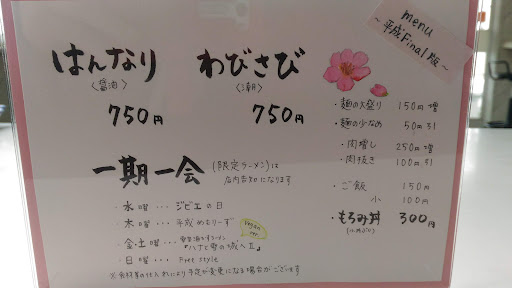 menu
～平成Final版～
はんなり
〈醤油〉
750円
わびさび
750円
・麺の大盛り 150円増
・麺の少なめ 50円引
・肉増し 250円増
・肉抜き 100円引
・ご飯 150円
小 100円
・もろみ丼 300円
一期一会
(限定ラーメン)は
店内告知になります
・水曜・・・ジビエの日
・木曜・・・平成めもりーず
Vegan
ver.
・金土曜・・・
『ハナと雪の城へⅡ』
・日曜・・・Free style
※食材等の仕入れにより予定が変更になる場合がございます